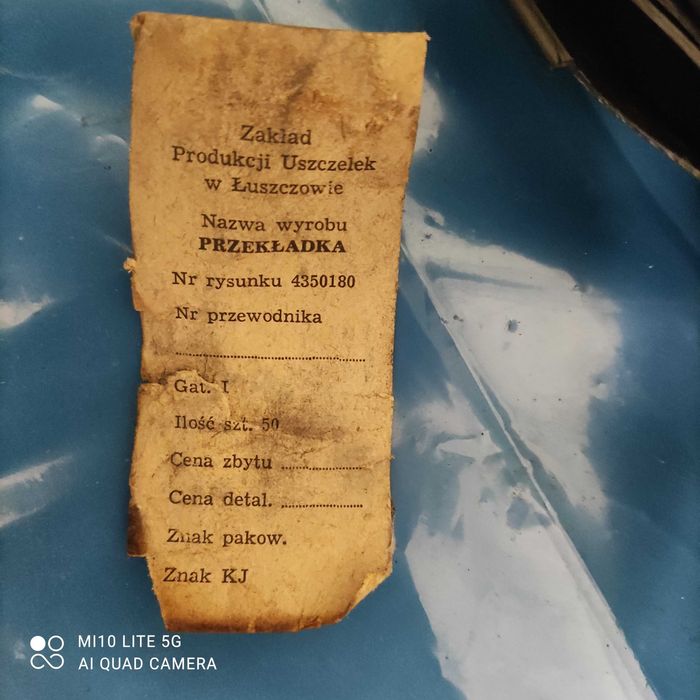 Zakład
Produkcji Uszczelek
w Łuszczowie
Nazwa wyrobu
PRZEKŁADKA
Nr rysunku 4350180
Nr przewodnika
Gat. I
Ilość szt. 50
Cena zbytu ....................
Cena detal. ....................
Znak pakow.
Znak KJ
MI10 LITE 5G
AI QUAD CAMERA